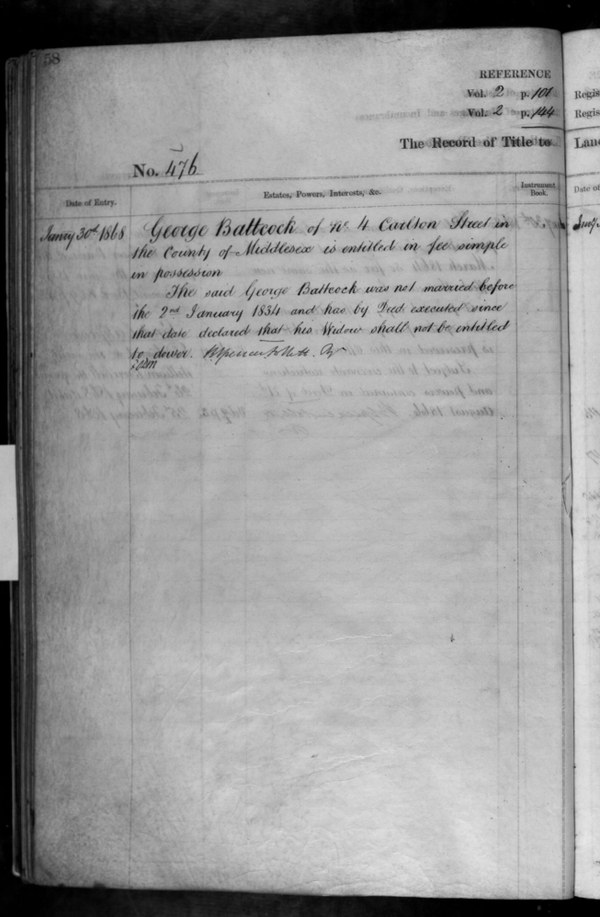 58
REFERENCE
Vol. 2 p. 101
Vol. 2 p. 144
The Record of Title to
No. 476
Date of Entry.
Estates, Powers, Interests, &c.
Instrument Book.
January 30th 1868
George Battcock of No 4 Carlton Street in
the County of Middlesex is entitled in fee simple
in possession
The said George Battcock was not married before
the 2nd January 1834 and has by Deed executed since
that date declared that his Widow shall not be entitled
to dower.
Regis
Regis
Land
Date of